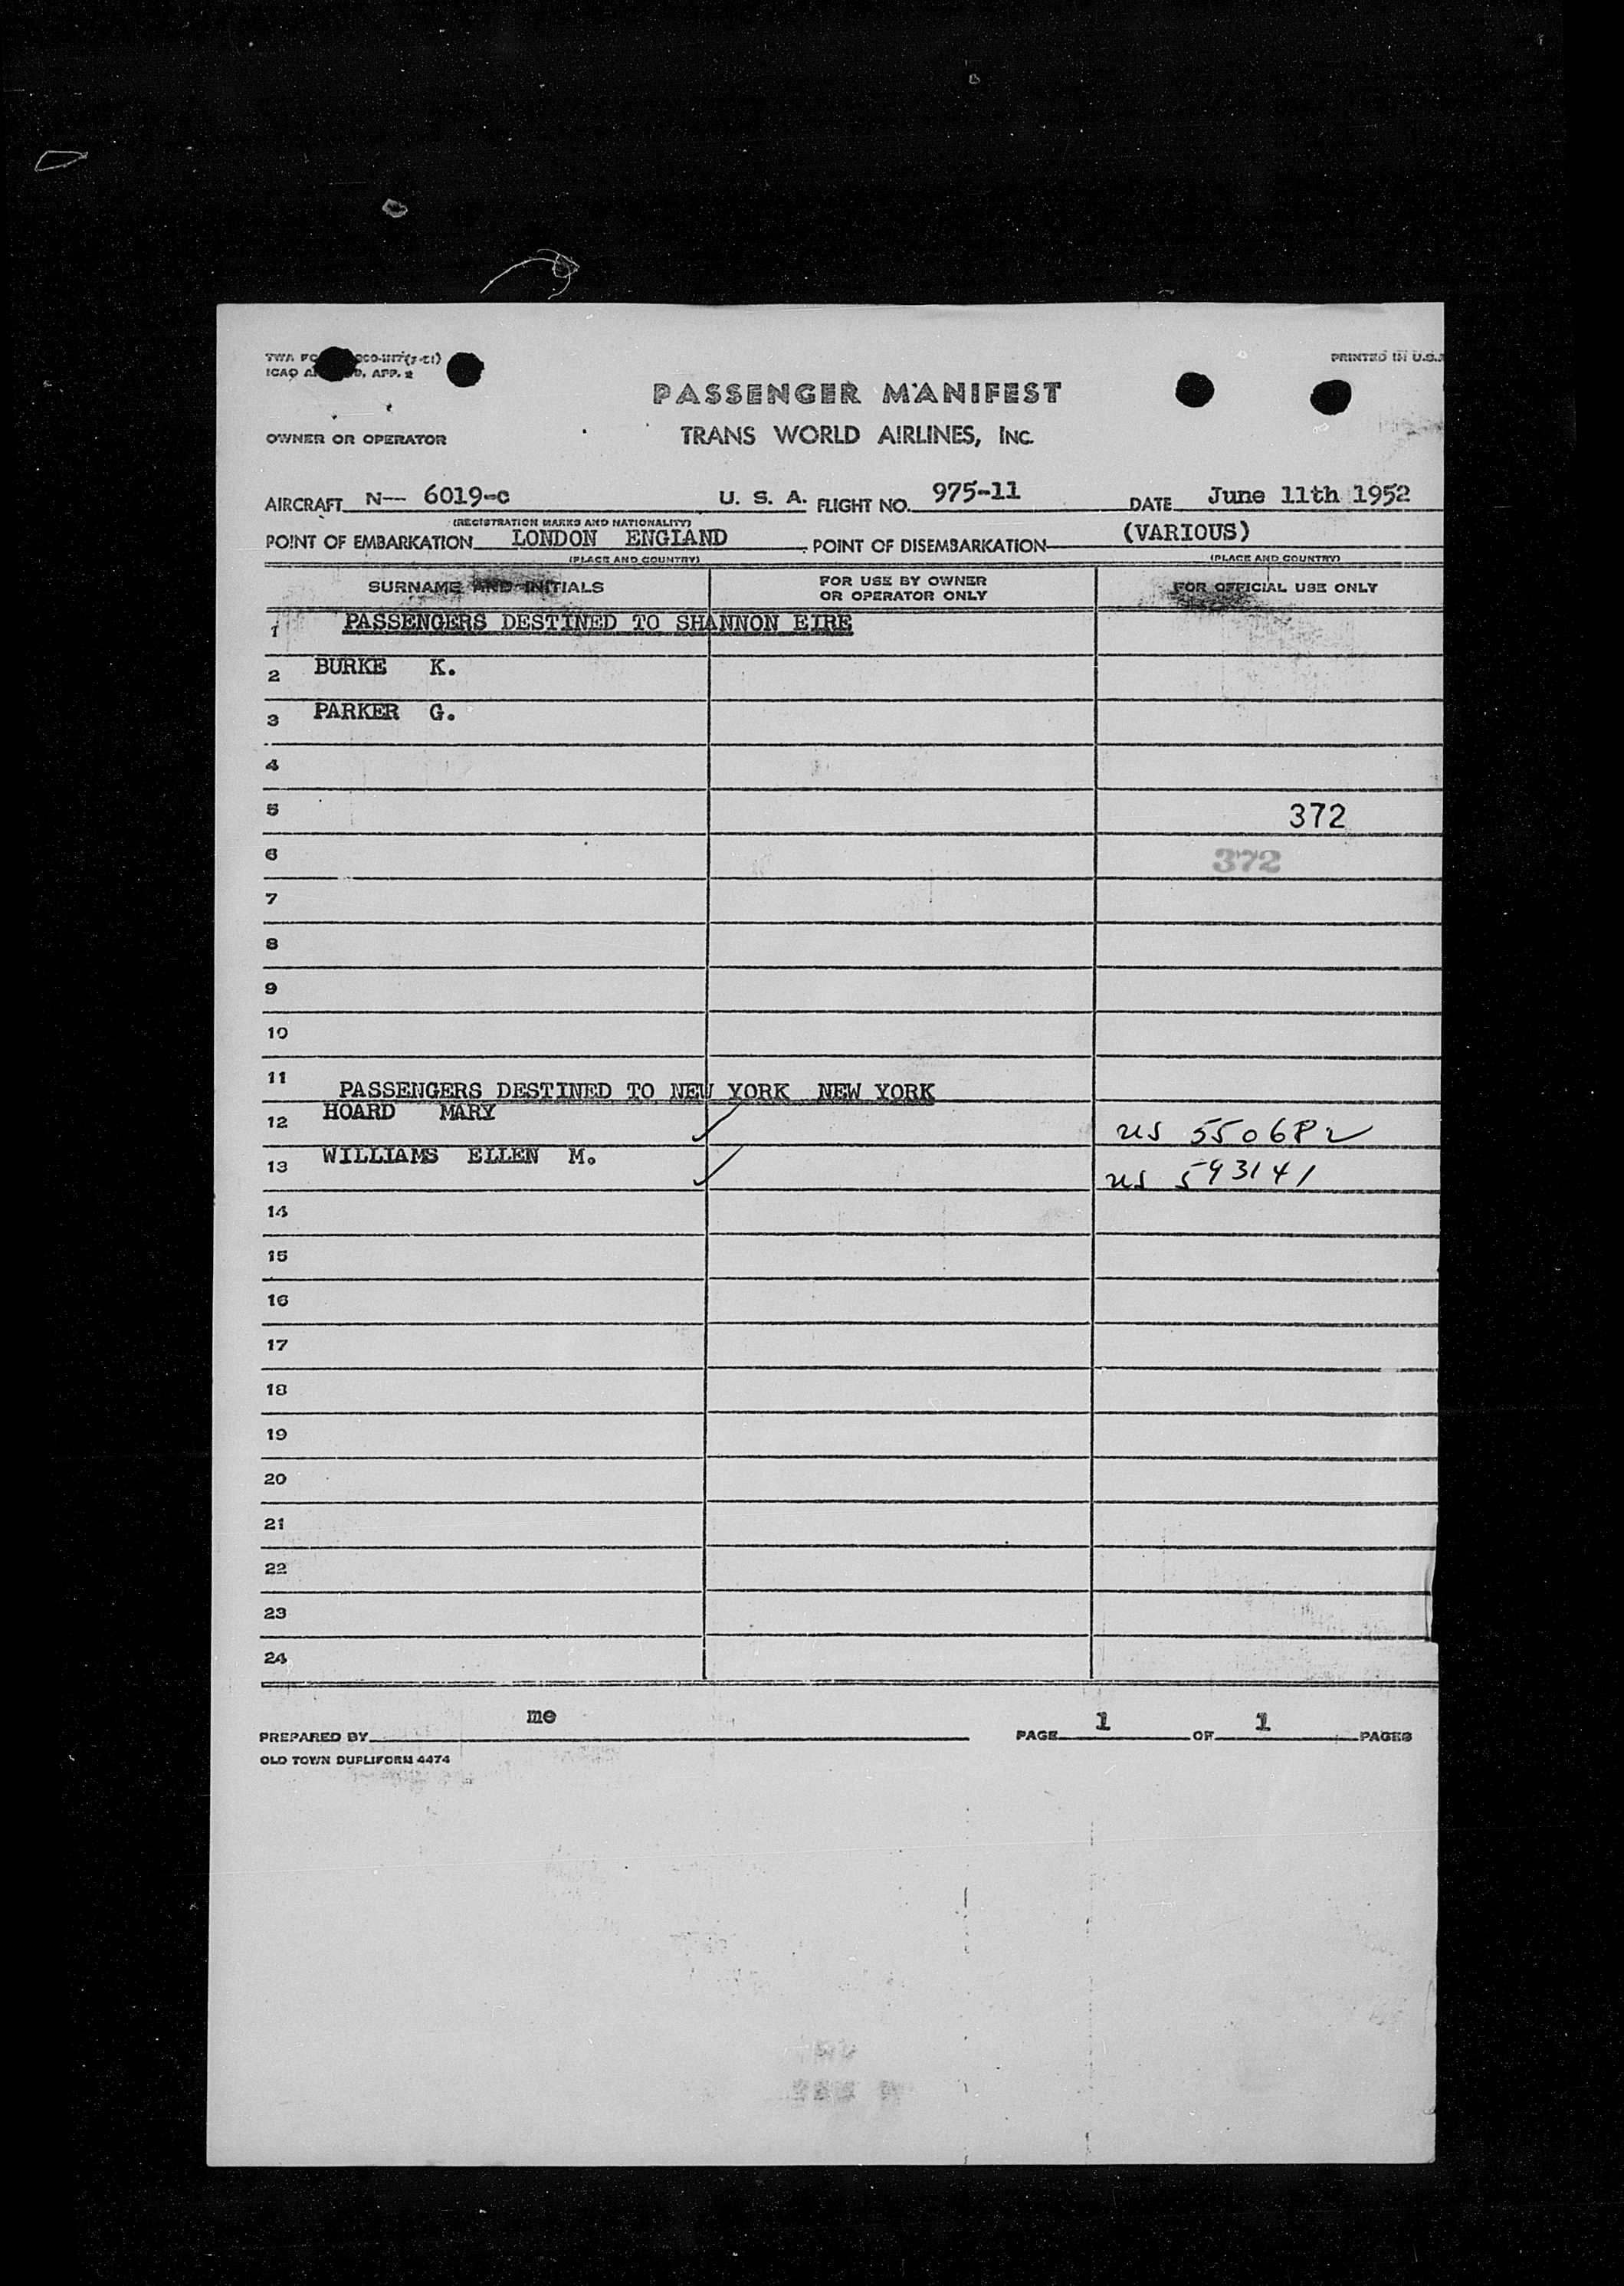 TWA FO
ICAO A D, APP. 2
PRINTED IN U.S.
PASSENGER MANIFEST
OWNER OR OPERATOR
TRANS WORLD AIRLINES, INC.
AIRCRAFT N-- 6019-c U. S. A. FLIGHT NO. 975-11 DATE June 11th 1952
(REGISTRATION MARKS AND NATIONALITY)
POINT OF EMBARKATION LONDON ENGLAND POINT OF DISEMBARKATION (VARIOUS)
(PLACE AND COUNTRY) (PLACE AND COUNTRY)
SURNAME AND INITIALS
FOR USE BY OWNER
OR OPERATOR ONLY
FOR OFFICIAL USE ONLY
1 PASSENGERS DESTINED TO SHANNON EIRE
2 BURKE K.
3 PARKER G.
4
5 372
6 372
7
8
9
10
11 PASSENGERS DESTINED TO NEW YORK NEW YORK
12 HOARD MARY ✓ US 550682
13 WILLIAMS ELLEN M. ✓ US 593141
14
15
16
17
18
19
20
21
22
23
24
PREPARED BY me PAGE 1 OF 1 PAGES
OLD TOWN DUPLIFORM 4474